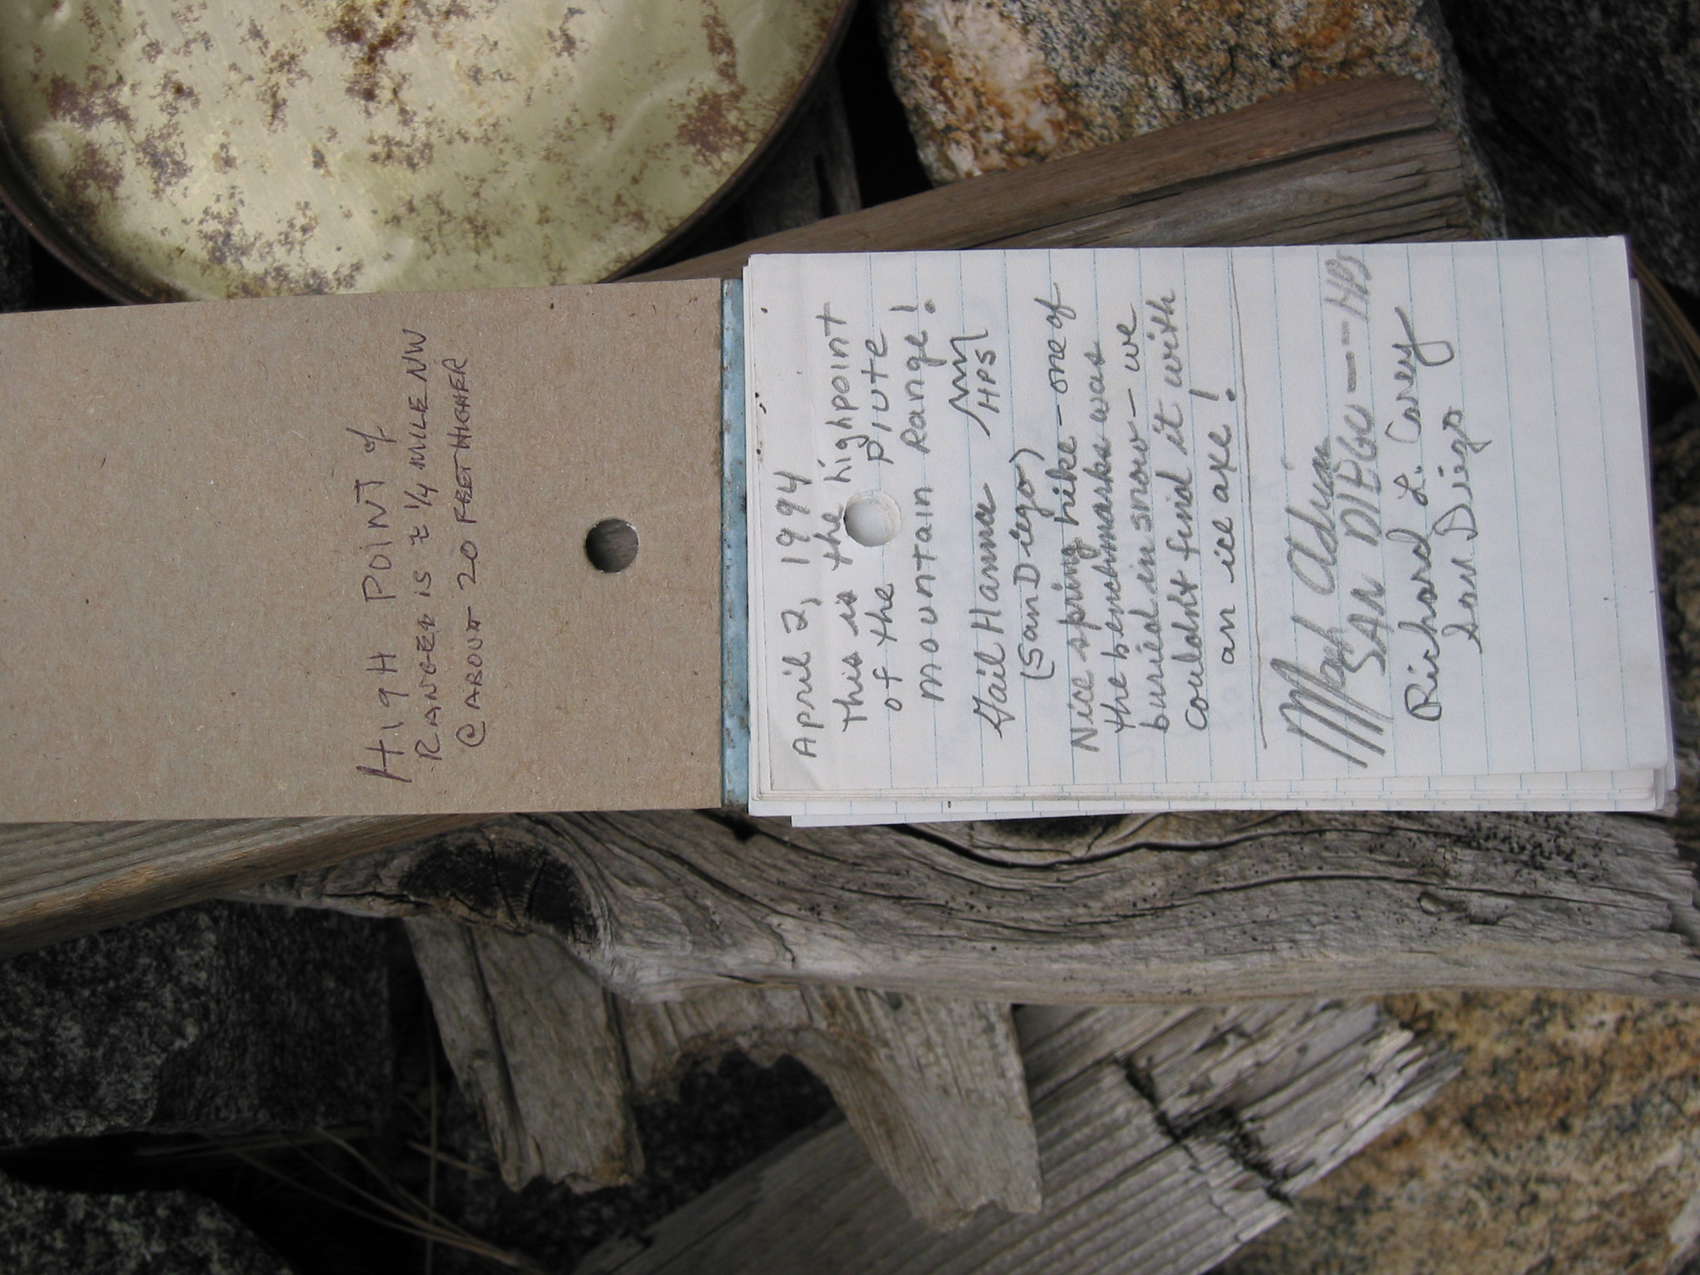 HIGH POINT of
RANGE IS ± 1/4 MILE NW
@ ABOUT 20 FEET HIGHER
April 2, 1994
This is the highpoint
of the Piute
Mountain Range!
Gail Hanna
HPS
(San Diego)
Nice spring hike - one of
the benchmarks was
buried in snow - we
couldn't find it with
an ice axe!
Mark Adrian
SAN DIEGO --- HPS
Richard L. Carey
San Diego